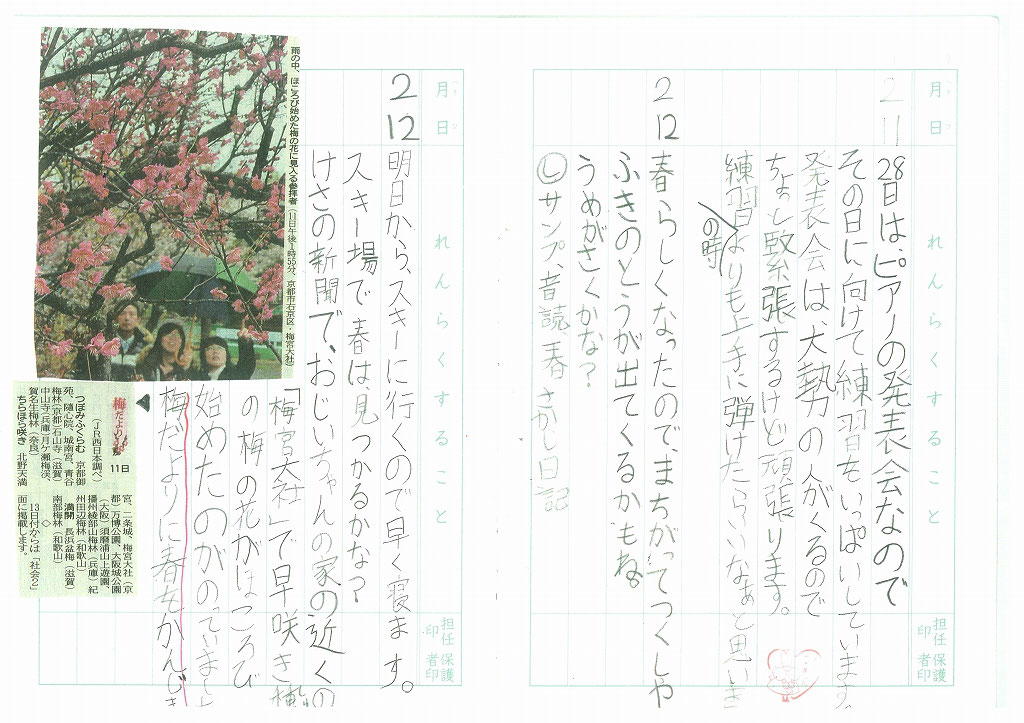 月 日
れんらくすること
2 11
28日は、ピアノの発表会なので
その日に向けて練習をいっぱいしています。
発表会は大勢の人がくるので
ちょっと緊張するけど頑張ります。
練習の時よりも上手に弾けたらいいなぁと思いま
2 12
春らしくなったので、まちがってつくしや
ふきのとうが出てくるかもね。
うめがさくかな?
サンプ、音読、春さがし日記
担任印 保護者印
月 日
れんらくすること
2 12
明日から、スキーに行くので早く寝ます。
スキー場で春は、見つかるかな?
けさの新聞で、おじいちゃんの家の近くの
「梅宮大社」で早咲き種
の梅の花がほころび
始めたのがのっていまし
梅だよりに春をかんじま
担任印 保護者印
雨の中、ほころび始めた梅の花に見入る参拝者(11日午後1時55分、京都市右京区・梅宮大社)
梅だより
11日
(JR西日本調べ)
つぼみふくらむ 京都御
苑、随心院、城南宮、青谷
梅林(京都)石山寺(滋賀)
中山寺(兵庫)月ケ瀬梅渓、
賀名生梅林(奈良)
ちらほら咲き 北野天満
宮、二条城、梅宮大社(京
都)万博公園、大阪城公園
(大阪)須磨浦山上遊園、
播州綾部山梅林(兵庫)紀
州田辺梅林(和歌山)
満開 長浜盆梅(滋賀)
南部梅林(和歌山)
◇
13日付からは「社会2」
面に掲載します。